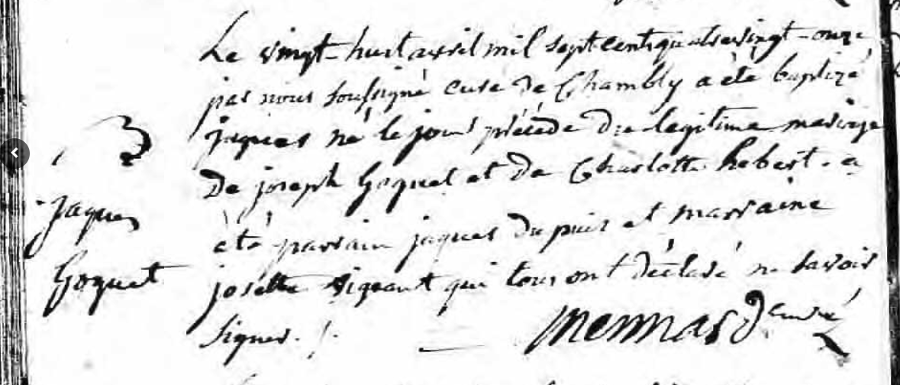 B
Jaques
Goguet
Le vingt-huit avril mil sept cent quatrevingt-onze
par nous soussigné curé de Chambly a été baptizé
jaques né le jour précéde du legitime mariage
De joseph Goguet et de Charlotte hebert. a
été parrain jaques Dupuis et marraine
josette vigeant qui tous ont déclaré ne savoir
signer. /.
mennard curé